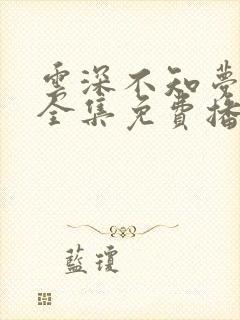 雲深不知夢
全集免費播
藍瓊